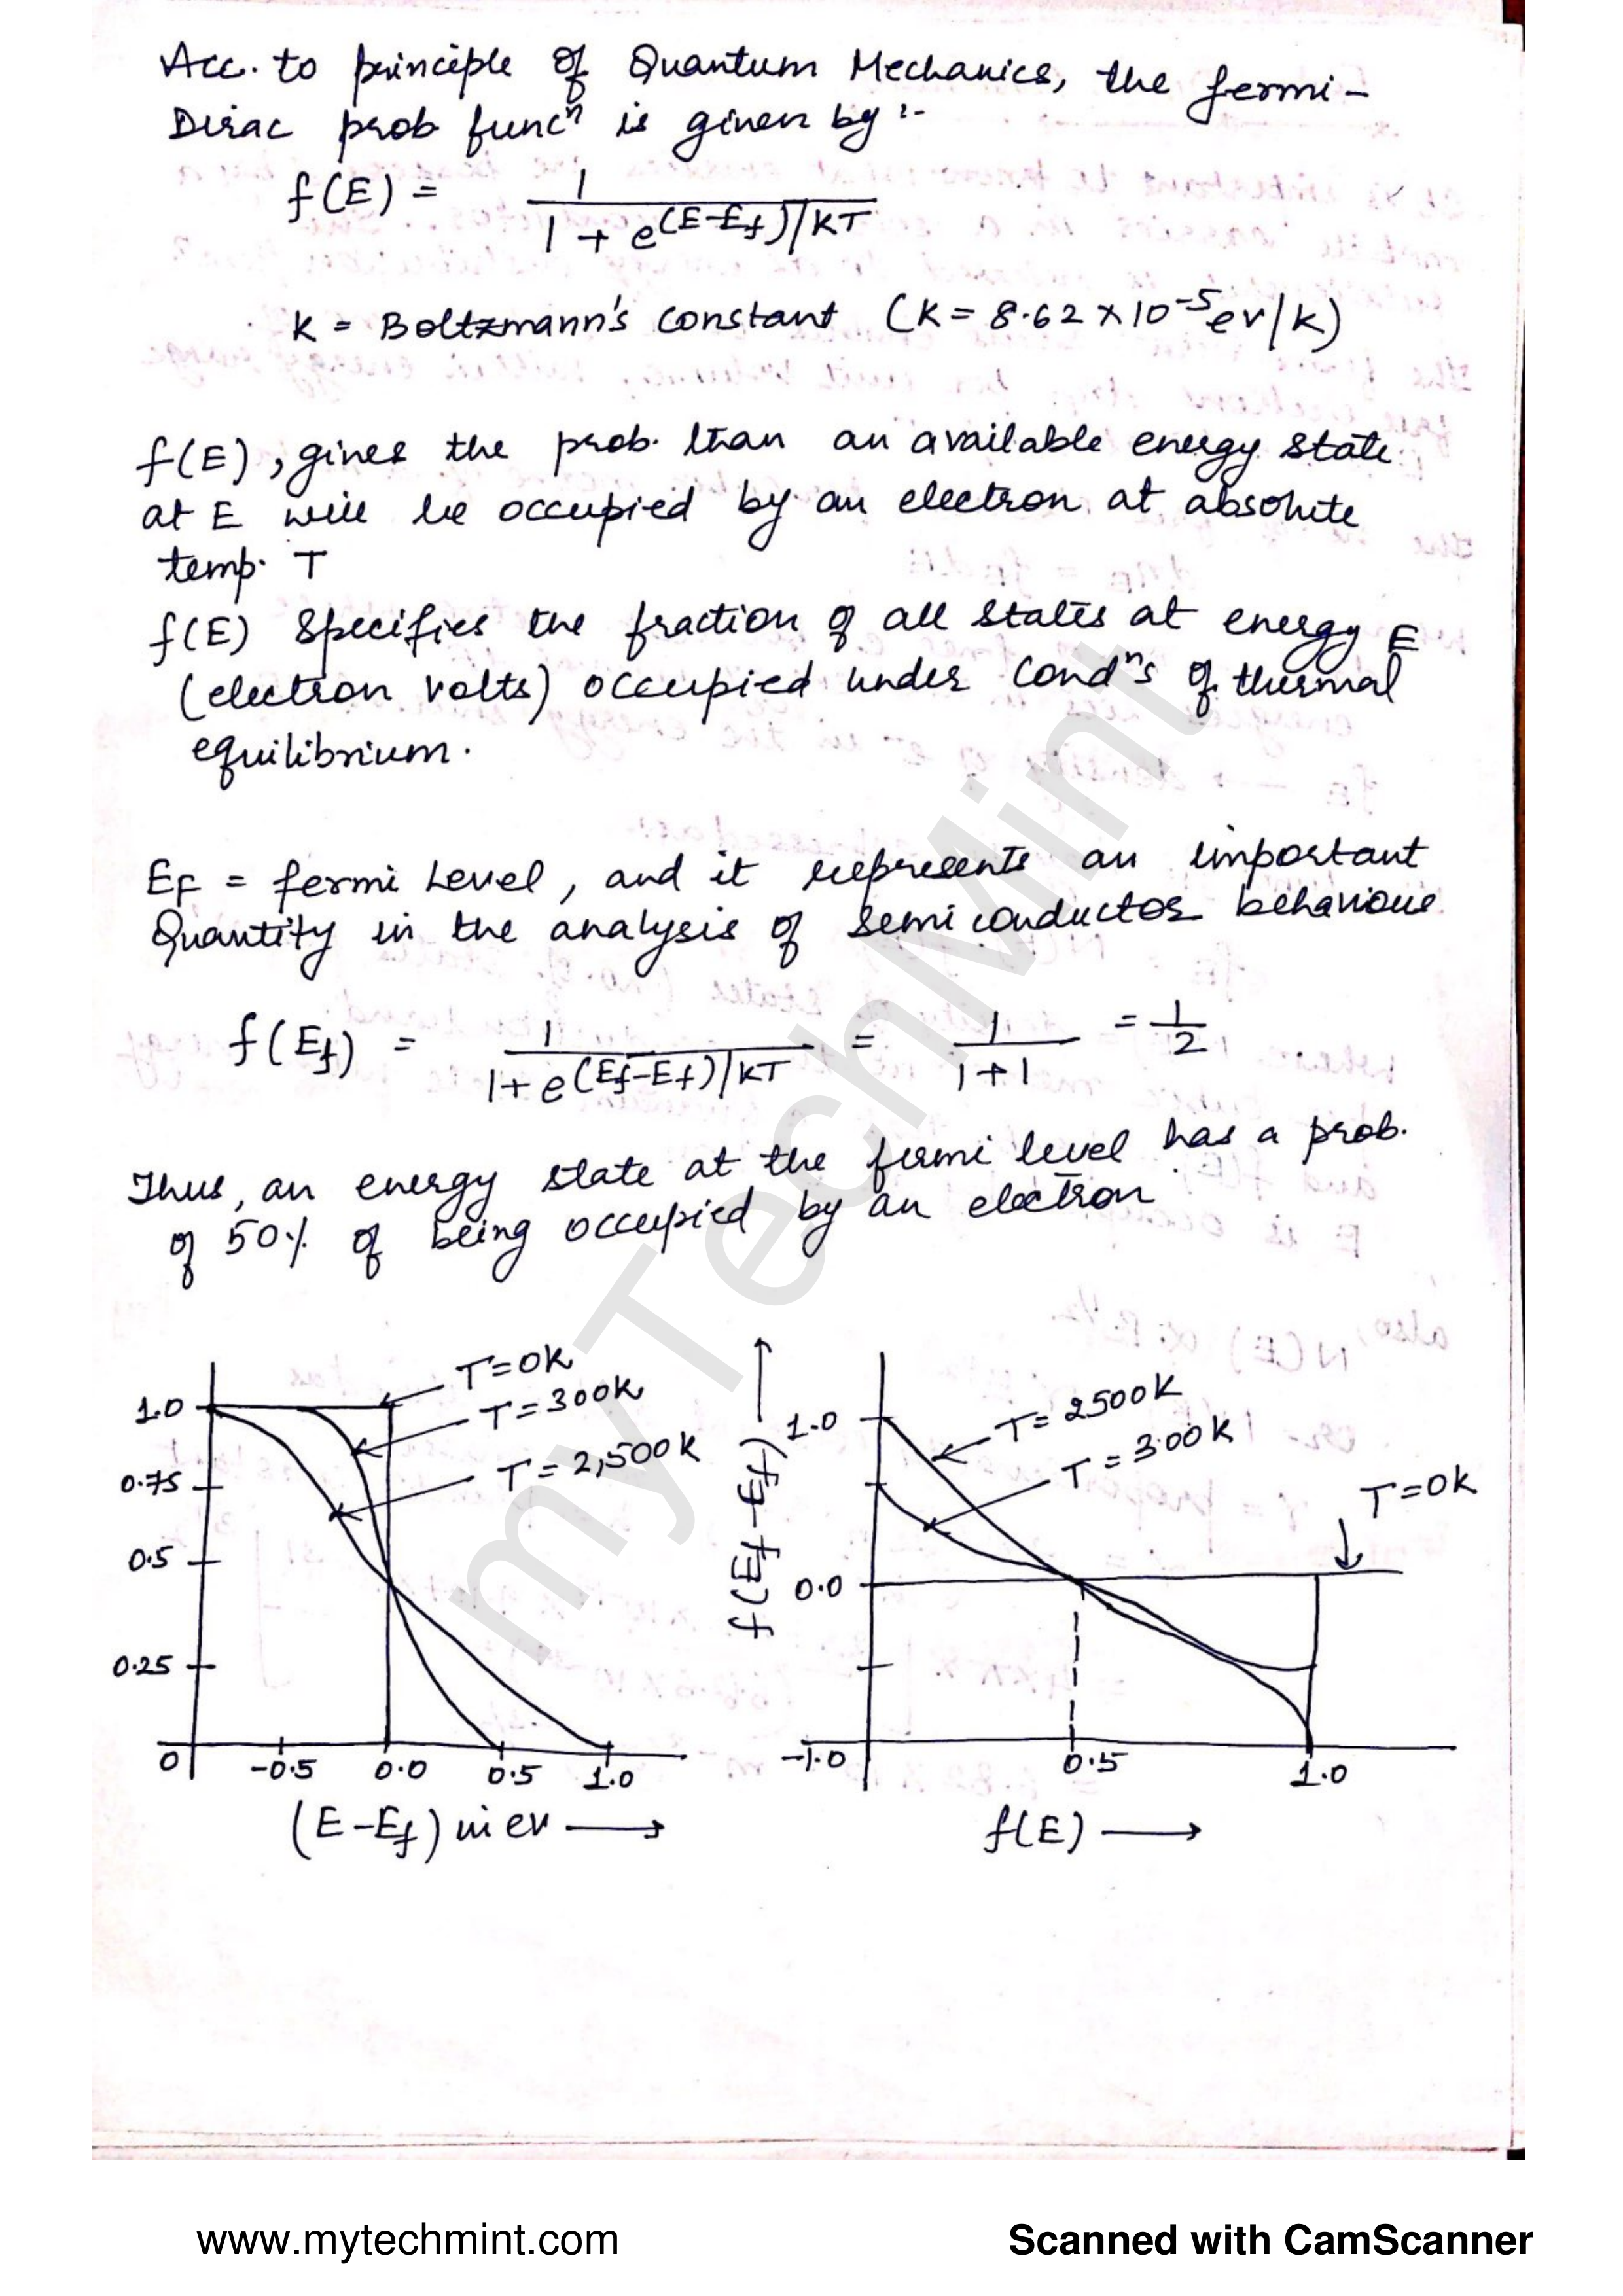 Acc. to principle of Quantum Mechanics, the fermi-
Dirac prob funcⁿ is given by :-
f(E) = 1 / 1 + e^(E-Ef)/KT
K = Boltzmann's constant (K = 8.62 × 10⁻⁵ ev/k)
f(E), gives the prob. than an available energy state
at E will be occupied by an electron at absolute
temp. T
f(E) Specifies the fraction of all states at energy E
(electron volts) occupied under condⁿs of thermal
equilibrium.
EF = fermi Level, and it represents an important
Quantity in the analysis of semiconductor behaviour
f(Ef) = 1 / 1 + e^(Ef-Ef)/KT = 1 / 1+1 = 1/2
Thus, an energy state at the fermi level has a prob.
of 50% of being occupied by an electron
T=0K
T=300K
T=2,500K
1.0
0.75
0.5
0.25
0
-0.5 0.0 0.5 1.0
(E-Ef) in ev →
f(Ef-Ef) →
1.0
0.0
-1.0
T=2500K
T=300K
T=0K
0.5 1.0
f(E) →
myTechMint
www.mytechmint.com
Scanned with CamScanner